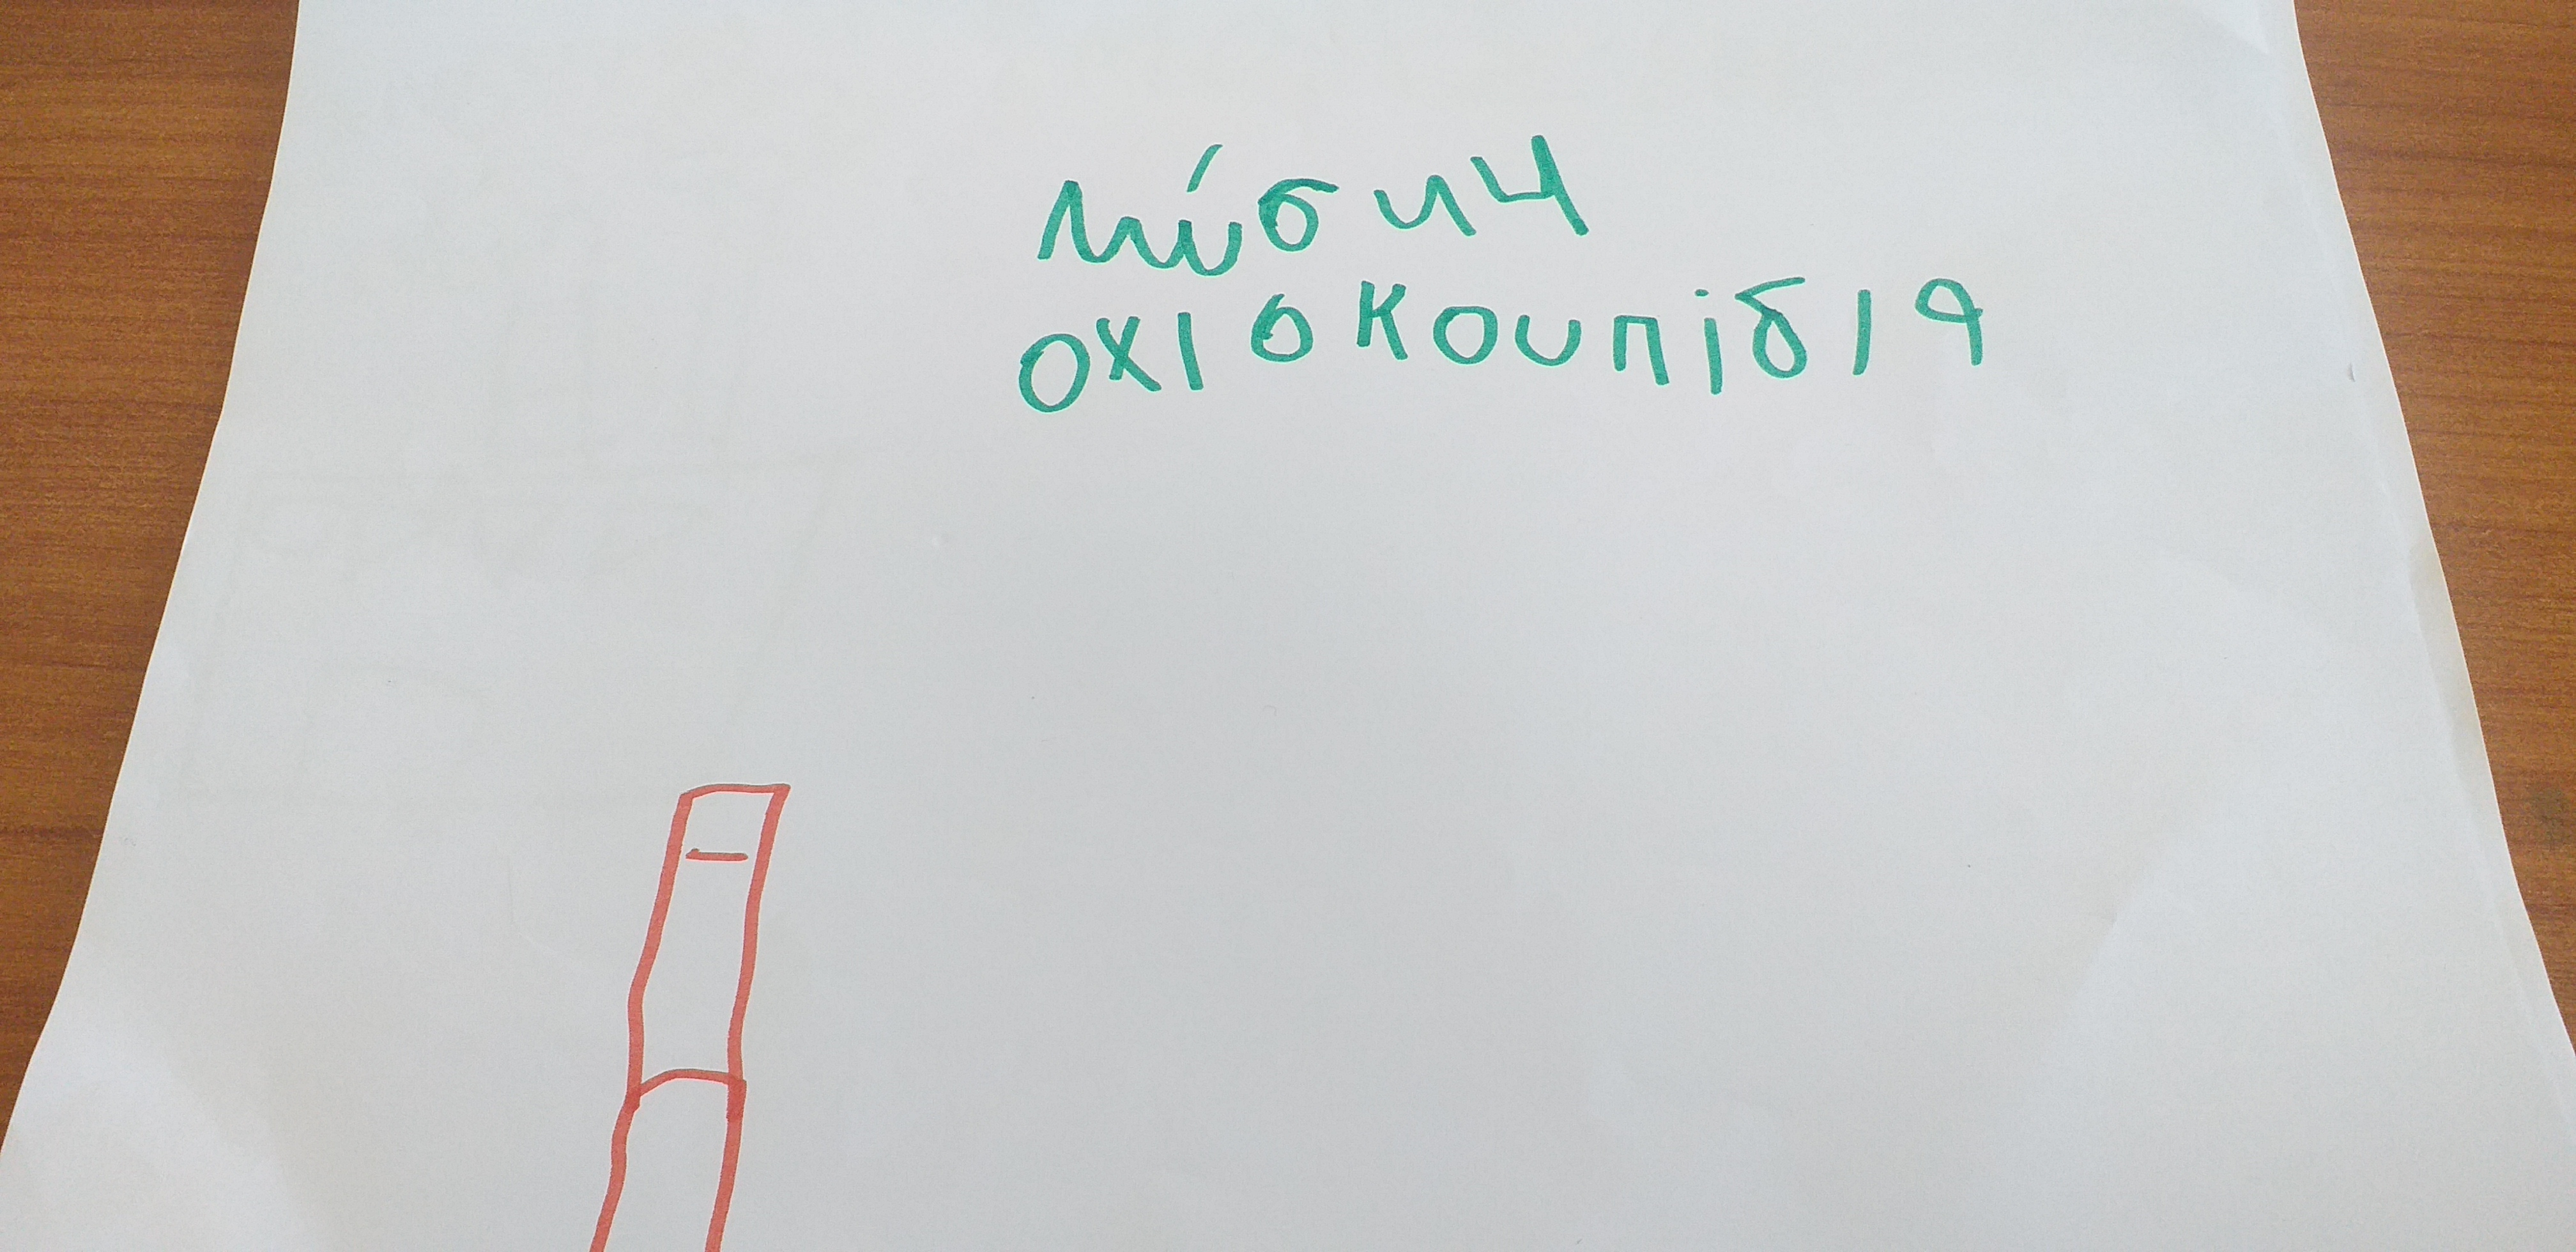 λύση 4
οχι σκουπίδια